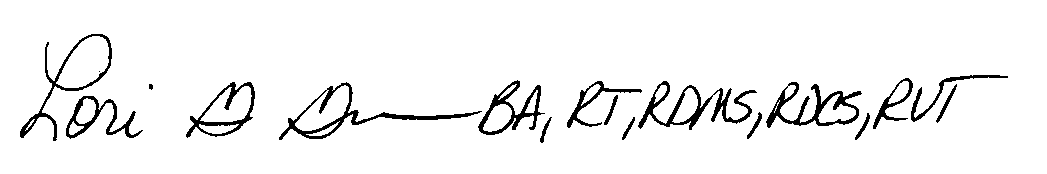 Lori G BA, RT, RDMS, RDCS, RVT